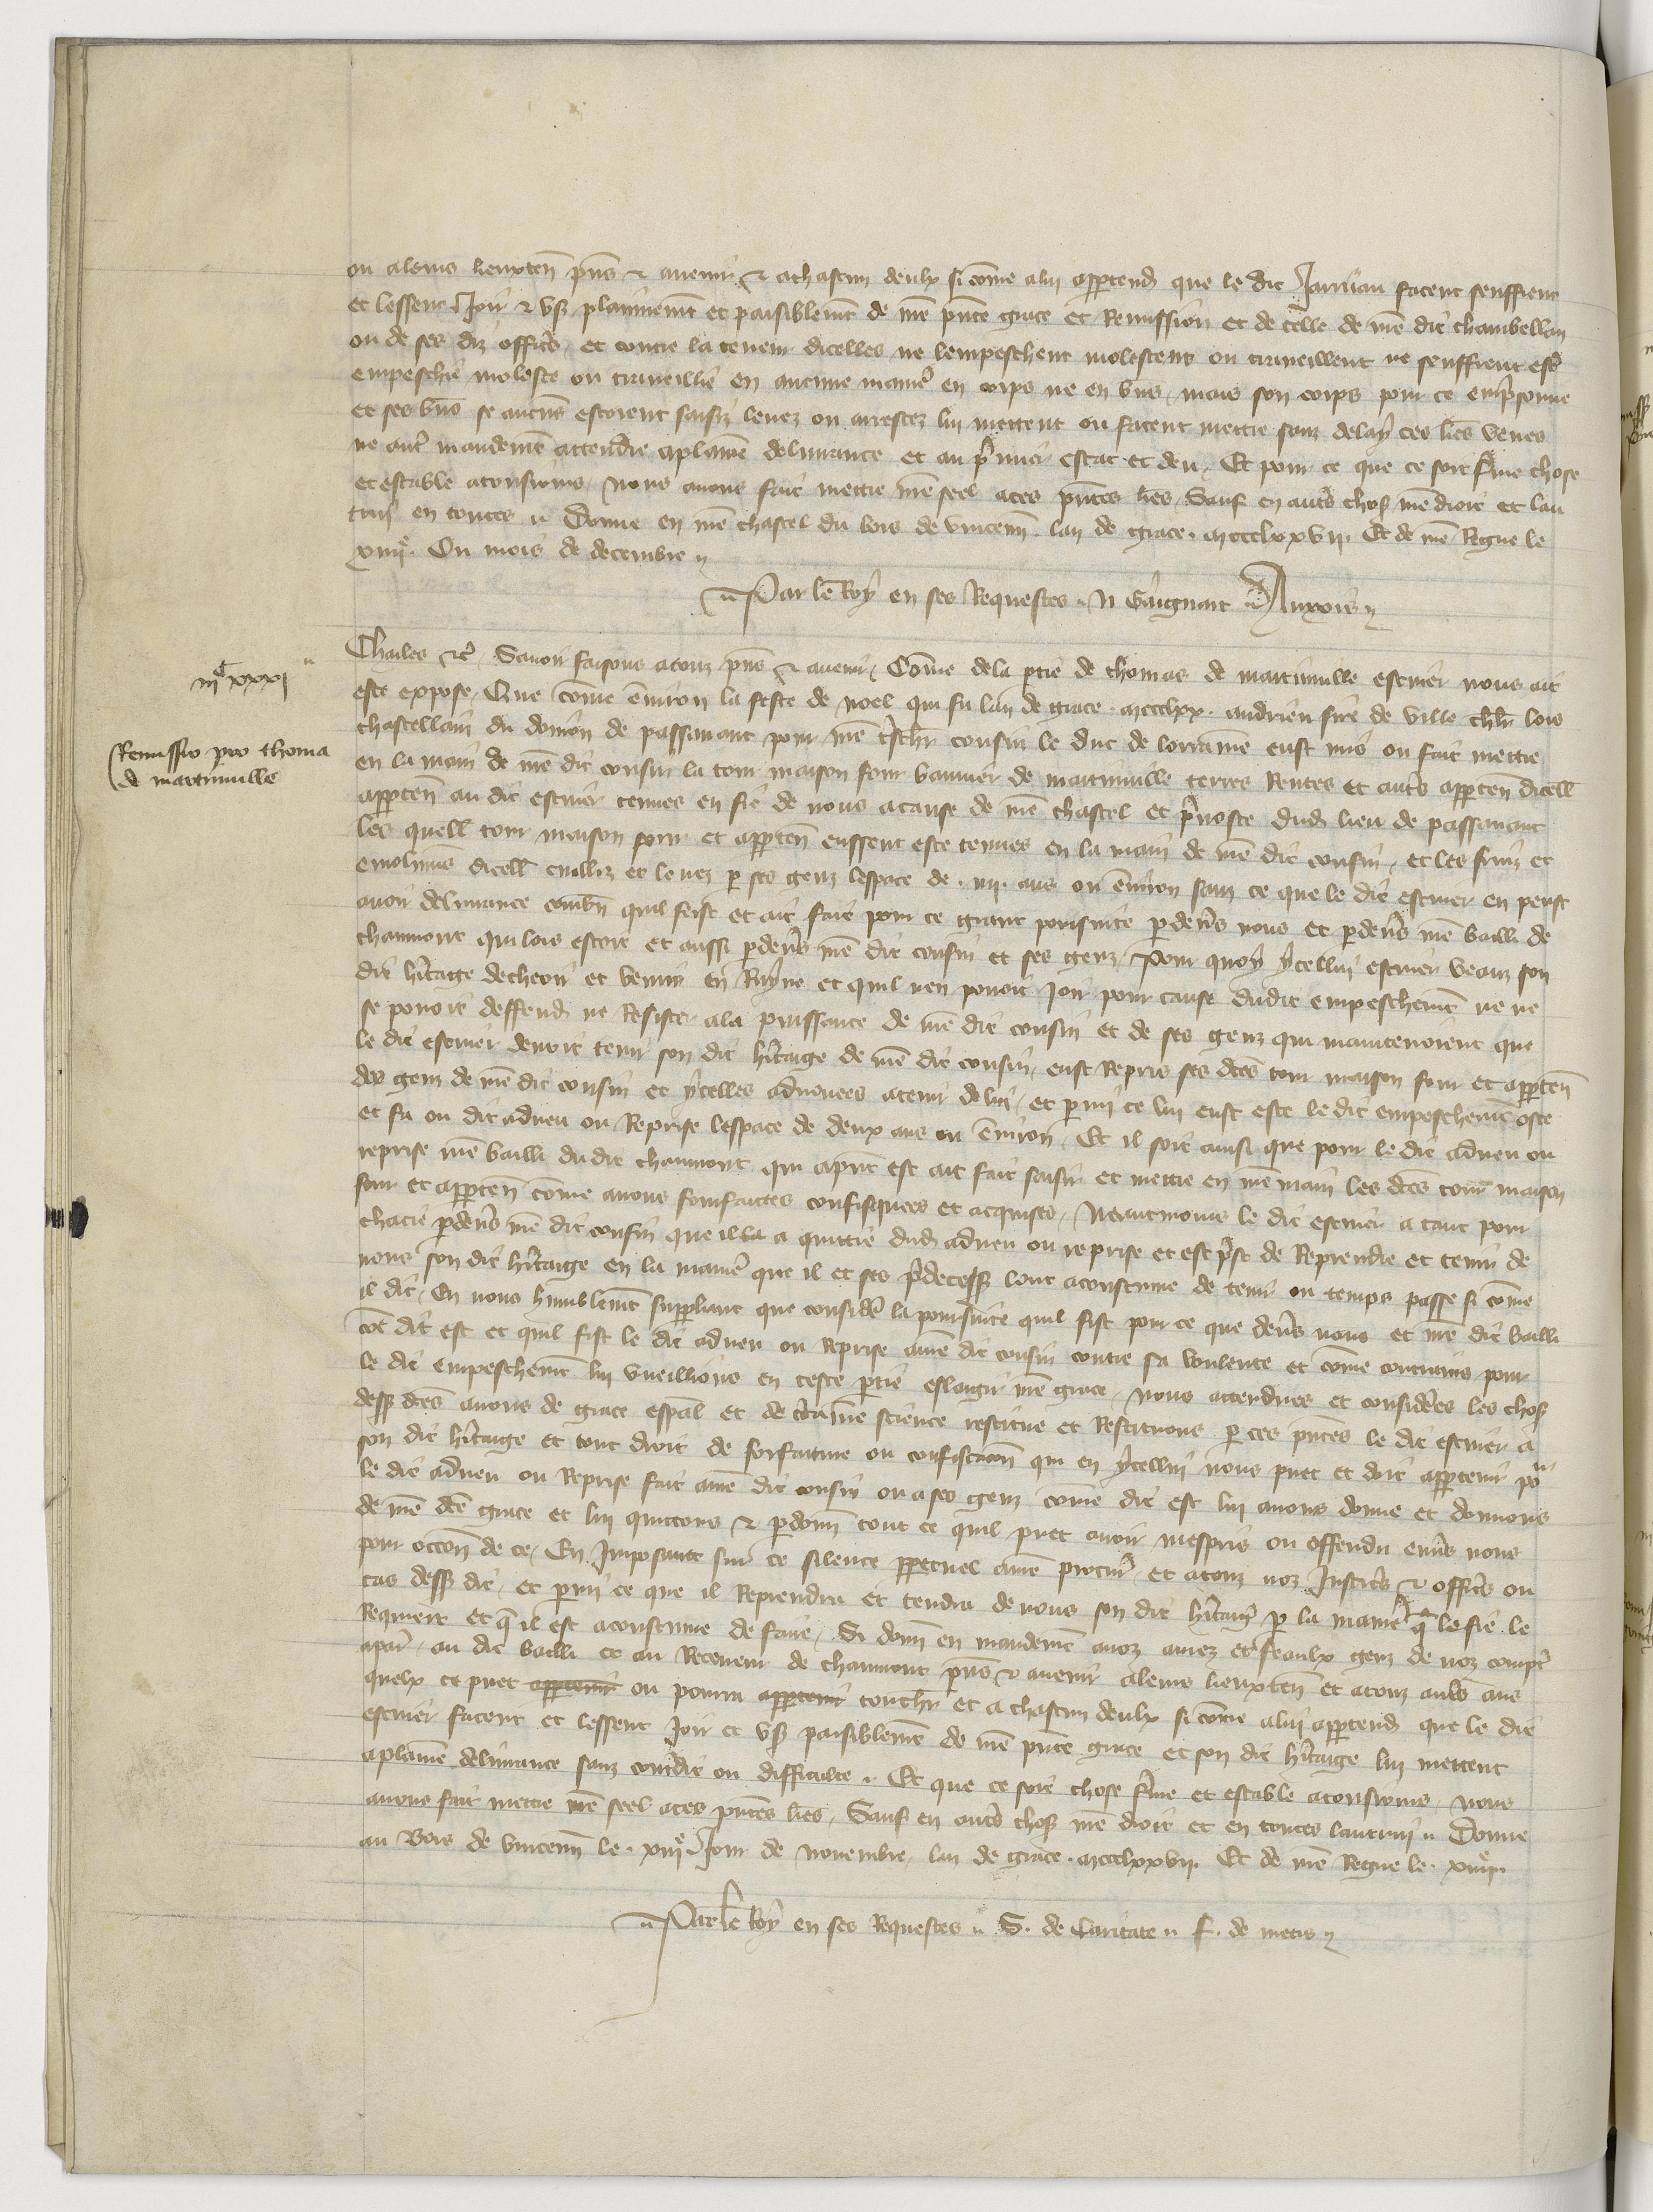 ou a leurs lieuxten̄ p̄ns ⁊ avenir ⁊ a chascun deulx si cōme a lui appartend̄ que le dit Jarruiau facent seuffrent
et lessent Joir ⁊ user plainnemēt et paisiblemēt de n̄re p̄nte grace et Remission et de celle de n̄re dit chambellan
ou de ses diz offic̄s et contre la teneur dicelles ne lempeschent molestent ou traveillent ne seuffrent est̄
empeschie moleste ou traveillie en aucune manie͛ en corps ne en biēs mais son corps pour ce emp̄sonne
et ses biēs se aucuns estoient saisiz levez ou arrestez lui mettent ou facent mettre sanz delay ces l͞res veues
ne aut͛ mandemēt attendre a plainē delivrance et au p̄mier estat et deu. Et pour ce que ce soit f͛me chose
et estable a tousiours, nous avons fait mettre n̄re seel a ces p̄ntes l͞res. Sauf en aut͛s chos̄ n̄re droit et lau
truy en toutes. Donne en n̄re chastel du bois de vincen̄n lan de grace. mccclxxvii. Et de n̄re Regne le
xiiiie. Ou mois de decembre
Par le Roy en ses Requestes. N Gaignart. Auxois
iiic xxxi
Remissio pro thoma
de martinville
Charles ⁊c̄. Savoir faisons a touz p̄ns ⁊ avenir, Cōme de la p̄tie de thomas de martinville escuier nous ait
este expose, Que cōme ēnviron la feste de noel qui fu lan de grace. mccclxx. andrieu sire de ville ch̄lr lors
chastellain du donion de passavant pour n̄re t͛sch̄r cousin le duc de lorrainne eust mis ou fait mettre
en la main de n̄re dit cousin la tour maison four bannier de martinville terres Rentes et aut͛s apparten̄ dicell̄
apparten̄ au dit escuier tenues en fie de nous a cause de n̄re chastel et p̄voste dud̄ lieu de passavant
les quell̄ tour maison four et apparten̄ eussent este tenues en la main de n̄re dit cousin, et les fruiz et
emolumēs dicell̄ cuilliz et levez p̄ ses genz lespace de. iii. ans ou ēnviron sanz ce que le dit escuier en peust
avoir delivrance combiēn quil feist et ait fait pour ce grant poursuite p̄ devēs nous et p̄ devēs n̄re bailli de
chaumont qui lors estoit et aussi p̄ devēs n̄re dit cousin et ses genz, Pour quoy ycellui escuier veanz son
dit h͛itaige decheoir et venir en Ruyne et quil nen povoit Joir pour cause dudit empeschemēt ne ne
se povoit deffend̄ ne Resister a la puissance de n̄re dit cousin et de ses genz qui maintenoient que
le dit escuier devoit tenir son dit h͛itaige de n̄re dit cousin, eust Repris ses d̄ces tour maison four et apparten̄
des genz de n̄re dit cousin et ycelles advouees a tenir de lui, et p̄mi ce lui eust este le dit empeschemēt oste
et fu ou dit adveu ou Reprise lespace de deux ans ou ēnviron. Et il soit ainsi que pour le dit adveu ou
reprise n̄re bailli dudit chaumont qui a p̄nt est ait fait saisir et mettre en n̄re main les d̄ces tour maison
four et apparten̄ cōme a nous fourfaittes confisquees et acquises. Neantmoins le dit escuier a tant pour
chacie p̄ devēs n̄re dit cousin que il la a quittie dud̄ adveu ou reprise et est p̄st de Reprendre et tenir de
nous son dit h͛itaige en la manie͛ que il et ses p̄decess̄ lont acoustume de tenir ou temps passe si cōme
il dit. En nous humblemēt suppliant que consid̄e la poursuite quil fist pour ce que devēs nous et n̄re dit bailli
cōe dit est et quil fist le dit adveu ou Reprise a n̄re dit cousin contre sa voulente et cōme contrains pour
le dit empeschemēt lui vueillions en ceste p̄tie eslargir n̄re grace. Nous attendues et considerēes les chos̄
dess̄ d̄ces avons de grace esp̄al et de c͛tainne science restitue et Restituons p̄ ces p̄ntes le dit escuier a
son dit h͛itaige et tout droit de forfaiture ou confiscaciōn qui en ycellui nous puet et doit appartenir pour
le dit adveu ou Reprise fait a n̄re dit cousin ou a ses genz cōme dit est lui avons donne et donnons
de n̄re d̄ce grace et lui quictons ⁊ p̄donn̄ tout ce quil puet avoir mespris ou offendu envēs nous
pour occōn de ce, En Imposant sur ce silence p̄petuel a n̄re procur͛ et a touz noz Justic̄s ⁊ offic̄s ou
cas dess̄ dit, et p̄mi ce que il Reprendra et tendra de nous son dit h͛itaiḡ p̄ la manie͛ q̄ le fie le
Requiert et q̄ il est acoustume de faire. Si donn̄ en mandemēt a noz amez et feaulx genz de noz compt̄
a par͛. au dit bailli et au Receveur de chaumont p̄ns ⁊ avenir a leurs lieuxten̄ et a touz aut͛s aus
quelx ce puet appartenir ou pourra appartenir touch̄r et a chascun deulx si cōme a lui appartend̄ que le dit
escuier facent et lessent Joir et us̄ paisiblemēt de n̄re p̄nte grace et son dit h͛itaige lui mettent
a plainē delivrance sanz cont͛dit ou difficulte. Et que ce soit chose f͛me et estable a tousiours, nous
avons fait mettre n̄re seel a ces p̄ntes l͞res. Sauf en aut͛s chos̄ n̄re droit et en toutes lautruy. Donne
au Bois de vincen̄n le. xiiiie. Jour de novembre, lan de grace. mccclxxvii. Et de n̄re Regne le. xiiiie.
Par le Roy en ses Requestes. S. de Caritate. f. de metis